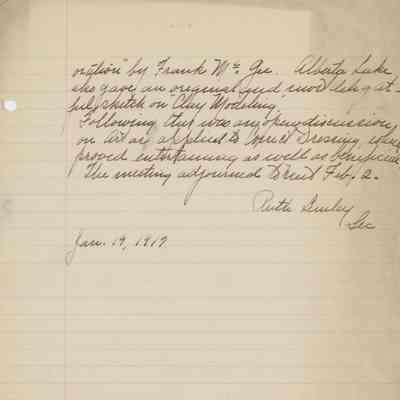 oration" by Frank Mc. Gee. Alberta Luke
also gave an original and most delight-
ful sketch on Clay Modeling.
Following this was an open discussion
on Art as applied to Dressing, which
proved entertaining as well as beneficial
The meeting adjourned to meet Feb. 2.
Ruth
Sec
Jan. 19, 1917